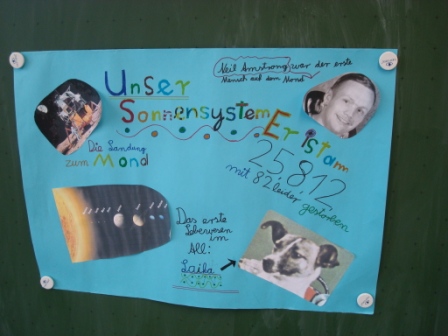 Unser
Sonnensystem
Neil Amstrong war der erste
Mensch auf dem Mond
Er ist am
25.8.12
mit 82 leider gestorben
Die Landung
zum Mond
Das erste
Lebewesen
im
All:
Laika